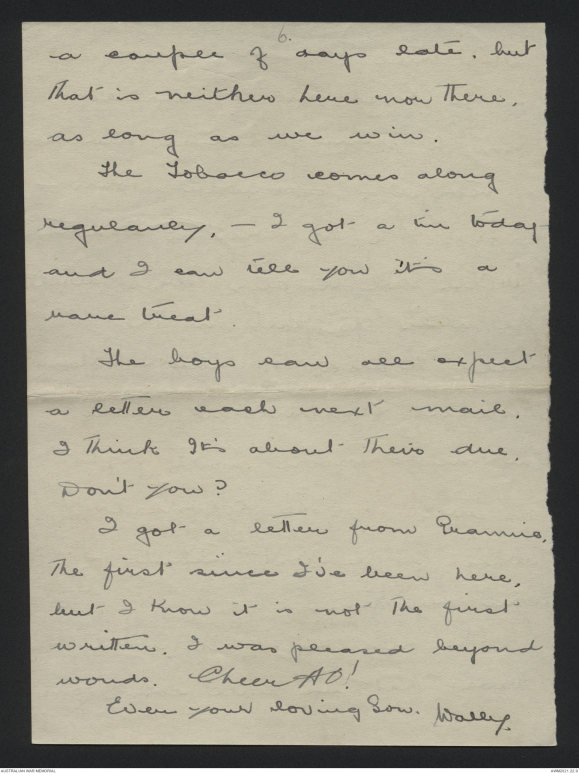 6.
a couple of days late. but
that is neither here nor there,
as long as we win.
The Tobacco comes along
regularly, – I got a tin today
and I can tell you it's a
rare treat.
The boys can all expect
a letter each next mail.
I think It's about theirs due.
Don't you?
I got a letter from Grannie,
the first since I've been here,
but I know it is not the first
written. I was pleased beyond
words. Cheer AO!
Ever your loving Son. Wally.
AUSTRALIAN WAR MEMORIAL